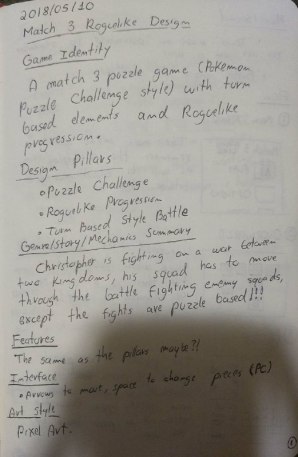 2018/05/10
Match 3 Roguelike Design
Game Identity
A match 3 puzzle game (Pokemon
Puzzle Challenge style) with turn
based elements and Roguelike
progression.
Design Pillars
• Puzzle Challenge
• Roguelike Progression
• Turn Based Style Battle
Genre/Story/Mechanics Summary
Christopher is fighting on a war between
two kingdoms, his squad has to move
through the battle fighting enemy squads,
except the fights are puzzle based!!!
Features
The same as the pillars maybe?!
Interface
• Arrows to move, space to change pieces (PC)
Art Style
Pixel Art.
1